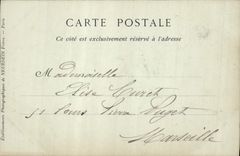 CARTE POSTALE
Ce côté est exclusivement réservé à l'adresse
Mademoiselle
Elisa
51 Cours Pierre Puget
Marseille
Etablissements Photographiques de NEURDEIN Frères. — Paris